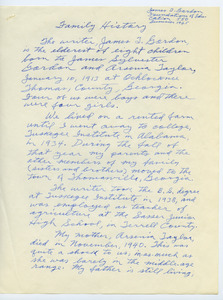 James T. Gordon
Family History
The writer James T. Gordon
is the elderest of eight children
born to James Sylvester
Gordon and Arsenia Taylor,
January 10, 1915 at Ochlocknee
Thomas County, Georgia.
Four of us were boys and there
were four girls.
We lived on a rented farm
until I went away to college,
Tuskegee Institute in Alabama
in 1934. During the fall of
that year my parents and the
other members of my family
(sisters and brothers) moved to the
town of Thomasville, Georgia.
The writer took the B.S. degree
at Tuskegee Institute in 1938, and
was employed as teacher of
agriculture at the Sasser Junior
High School, in Terrell County.
My mother, Arsenia Taylor
died in November, 1940. This was
quite a shock to us, inasmuch as
she was barely in the middle-age
range. My father is still living.